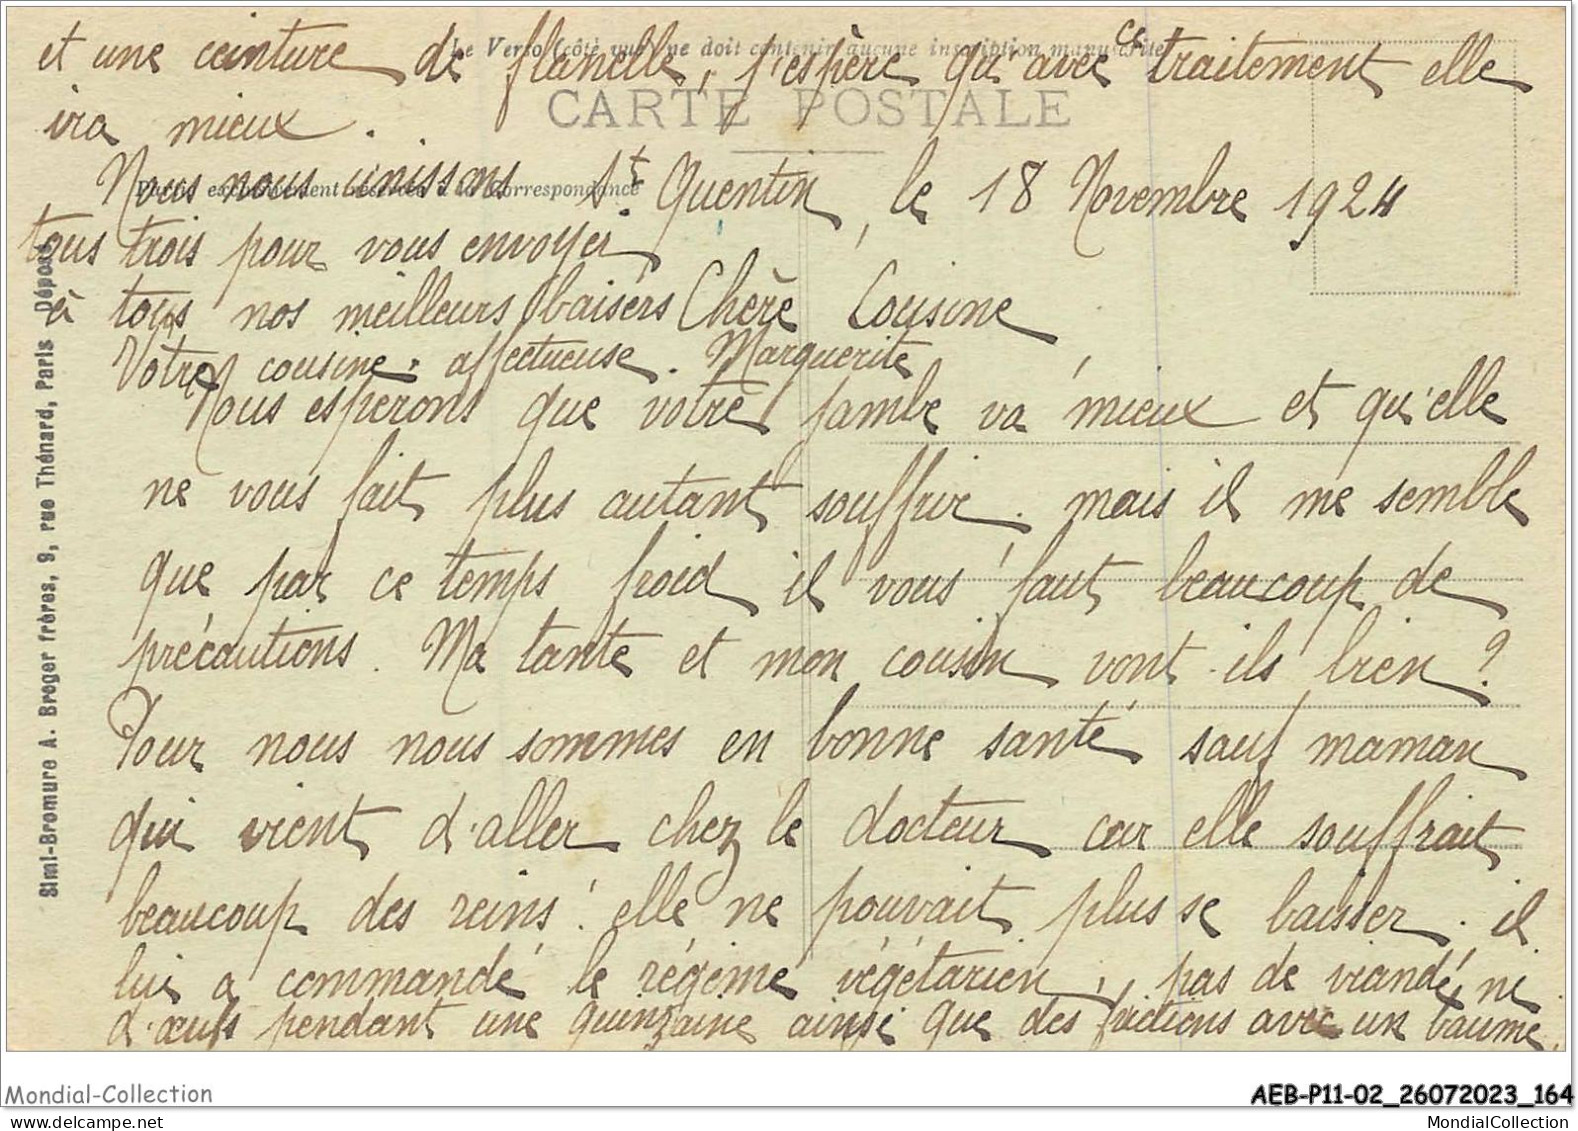 et une ceinture de flanelle, j'espère qu'avec ce traitement elle
ira mieux.
Le Verso (côté vue) ne doit contenir aucune inscription manuscrite
CARTE POSTALE
Partie exclusivement réservée à la Correspondance
Nous nous unissons
tous trois pour vous envoyer
à tous nos meilleurs baisers
Votre cousine affectueuse. Marguerite
St Quentin, le 18 Novembre 1924
Chère Cousine
Nous espérons que votre jambe va mieux et qu'elle
ne vous fait plus autant souffrir. mais il me semble
que par ce temps froid il vous faut beaucoup de
précautions. Ma tante et mon cousin vont-ils bien ?
Pour nous nous sommes en bonne santé sauf maman
qui vient d'aller chez le docteur car elle souffrait
beaucoup des reins. elle ne pouvait plus se baisser. il
lui a commandé le régime végétarien, pas de viande, ni
d'œufs pendant une quinzaine ainsi que des frictions avec un baume,
Simi-Bromure A. Breger frères, 9, rue Thénard, Paris Déposé
Mondial-Collection
AEB-P11-02_26072023_164
mondial-collection.com
MondialCollection